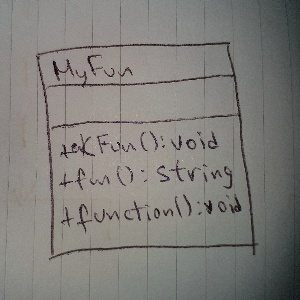 MyFun
+akFun():void
+fun():String
+function():void